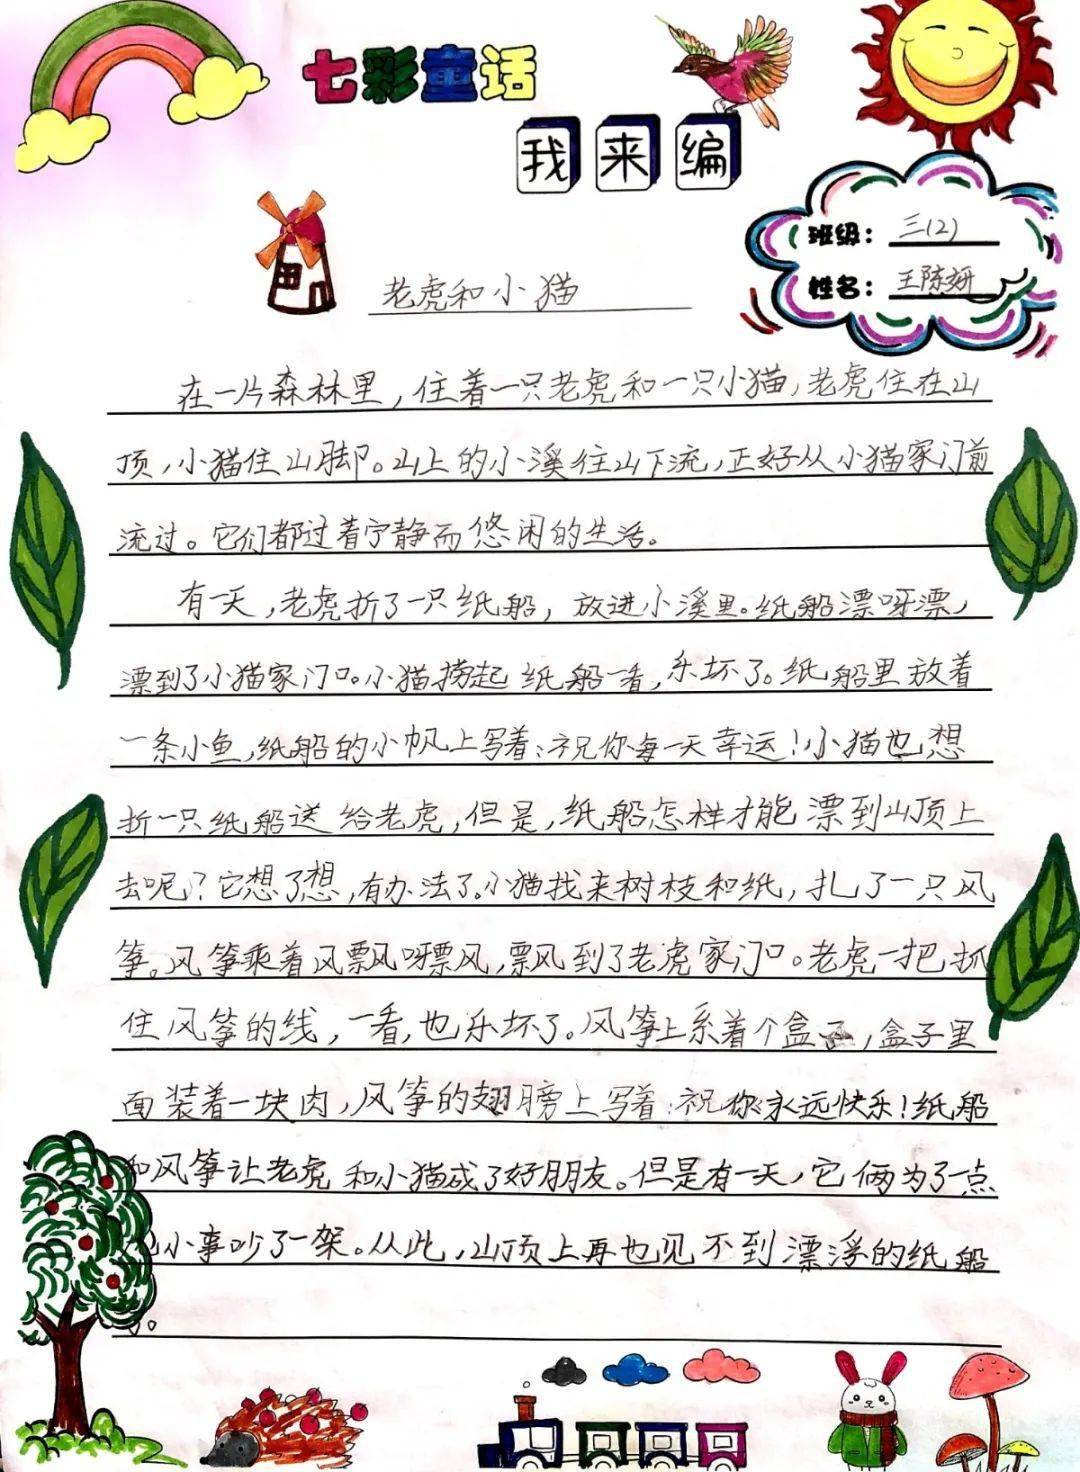 七彩童话
我来编
班级：三(2)
姓名：王陈妍
老虎和小猫
在一片森林里，住着一只老虎和一只小猫，老虎住在山
顶，小猫住山脚。山上的小溪往山下流，正好从小猫家门前
流过。它们都过着宁静而悠闲的生活。
有一天，老虎折了一只纸船，放进小溪里。纸船漂呀漂，
漂到了小猫家门口。小猫捞起纸船一看，乐坏了。纸船里放着
一条小鱼，纸船的小帆上写着：祝你每一天幸运！小猫也想
折一只纸船送给老虎，但是，纸船怎样才能漂到山顶上
去呢？它想了想，有办法了。小猫找来树枝和纸，扎了一只风
筝。风筝乘着风飘呀飘，飘到了老虎家门口。老虎一把抓
住风筝的线，一看，也乐坏了。风筝上系着个盒子，盒子里
面装着一块肉，风筝的翅膀上写着：祝你永远快乐！纸船
和风筝让老虎和小猫成了好朋友。但是有一天，它俩为了一点
小事吵了一架。从此，山顶上再也见不到漂浮的纸船
。